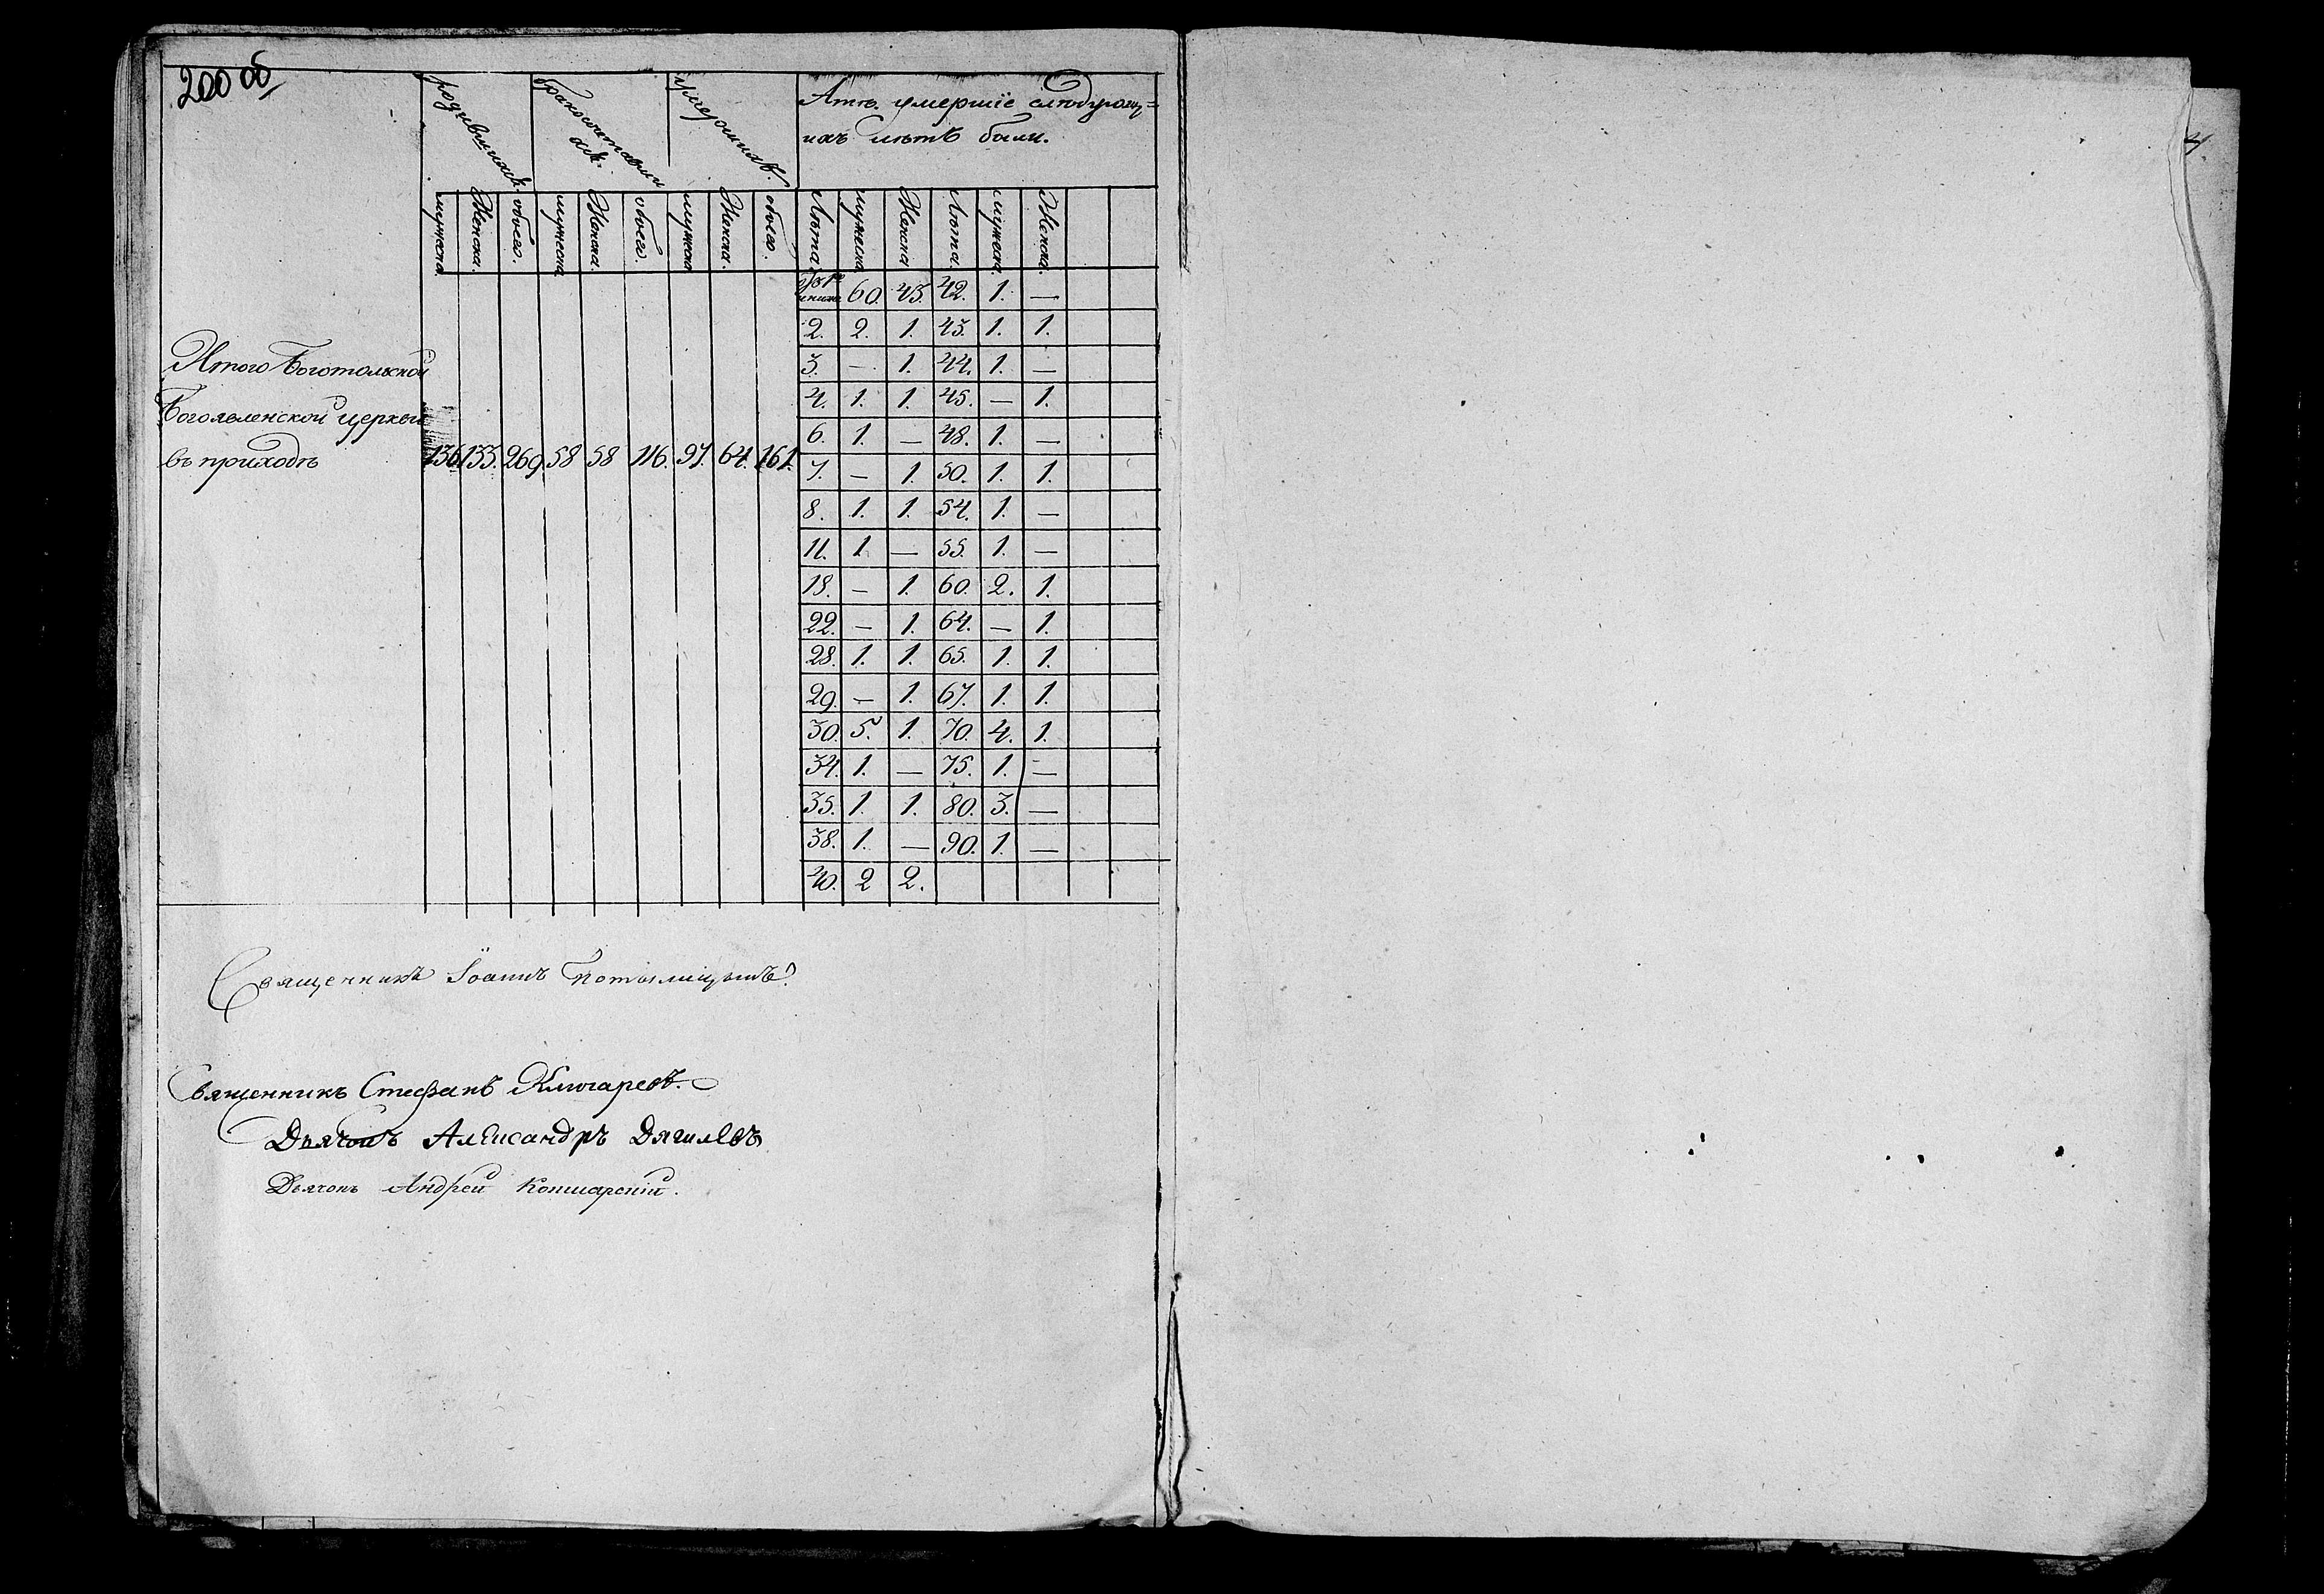 200 об
родившихся.
бракосочетавши
хся.
умершихъ.
А тѣ умершіе слѣдующ=
ихъ лѣтъ были.
мужеска. Женска. обоего. мужеска Женска. обоего. мужеска Женска. обоего. Лѣта. мужеска Женска Лѣта. мужеска. Женска.
60. 43. 42. 1. —
2. 2. 1. 43. 1. 1.
3. — 1. 44. 1. —
Итого Боготольской
4. 1. 1. 45. — 1.
Богоявленской церкви
6. 1. — 48. 1. —
въ приходѣ 136. 133. 269. 58 58 116. 97. 64. 161.
7. — 1. 50. 1. 1.
8. 1. 1. 54. 1. —
11. 1. — 55. 1. —
18. — 1. 60. 2. 1.
22. — 1. 64. — 1.
28. 1. 1. 65. 1. 1.
29. — 1. 67. 1. 1.
30. 5. 1. 70. 4. 1.
34. 1. — 75. 1. —
35. 1. 1. 80. 3. —
38. 1. — 90. 1. —
40. 2 2.
Священникъ Іоаннъ Потылицынъ.
Священникъ Стефанъ Ключаревъ.
Дьячокъ Александръ Дягилевъ
Дьячокъ Андрей